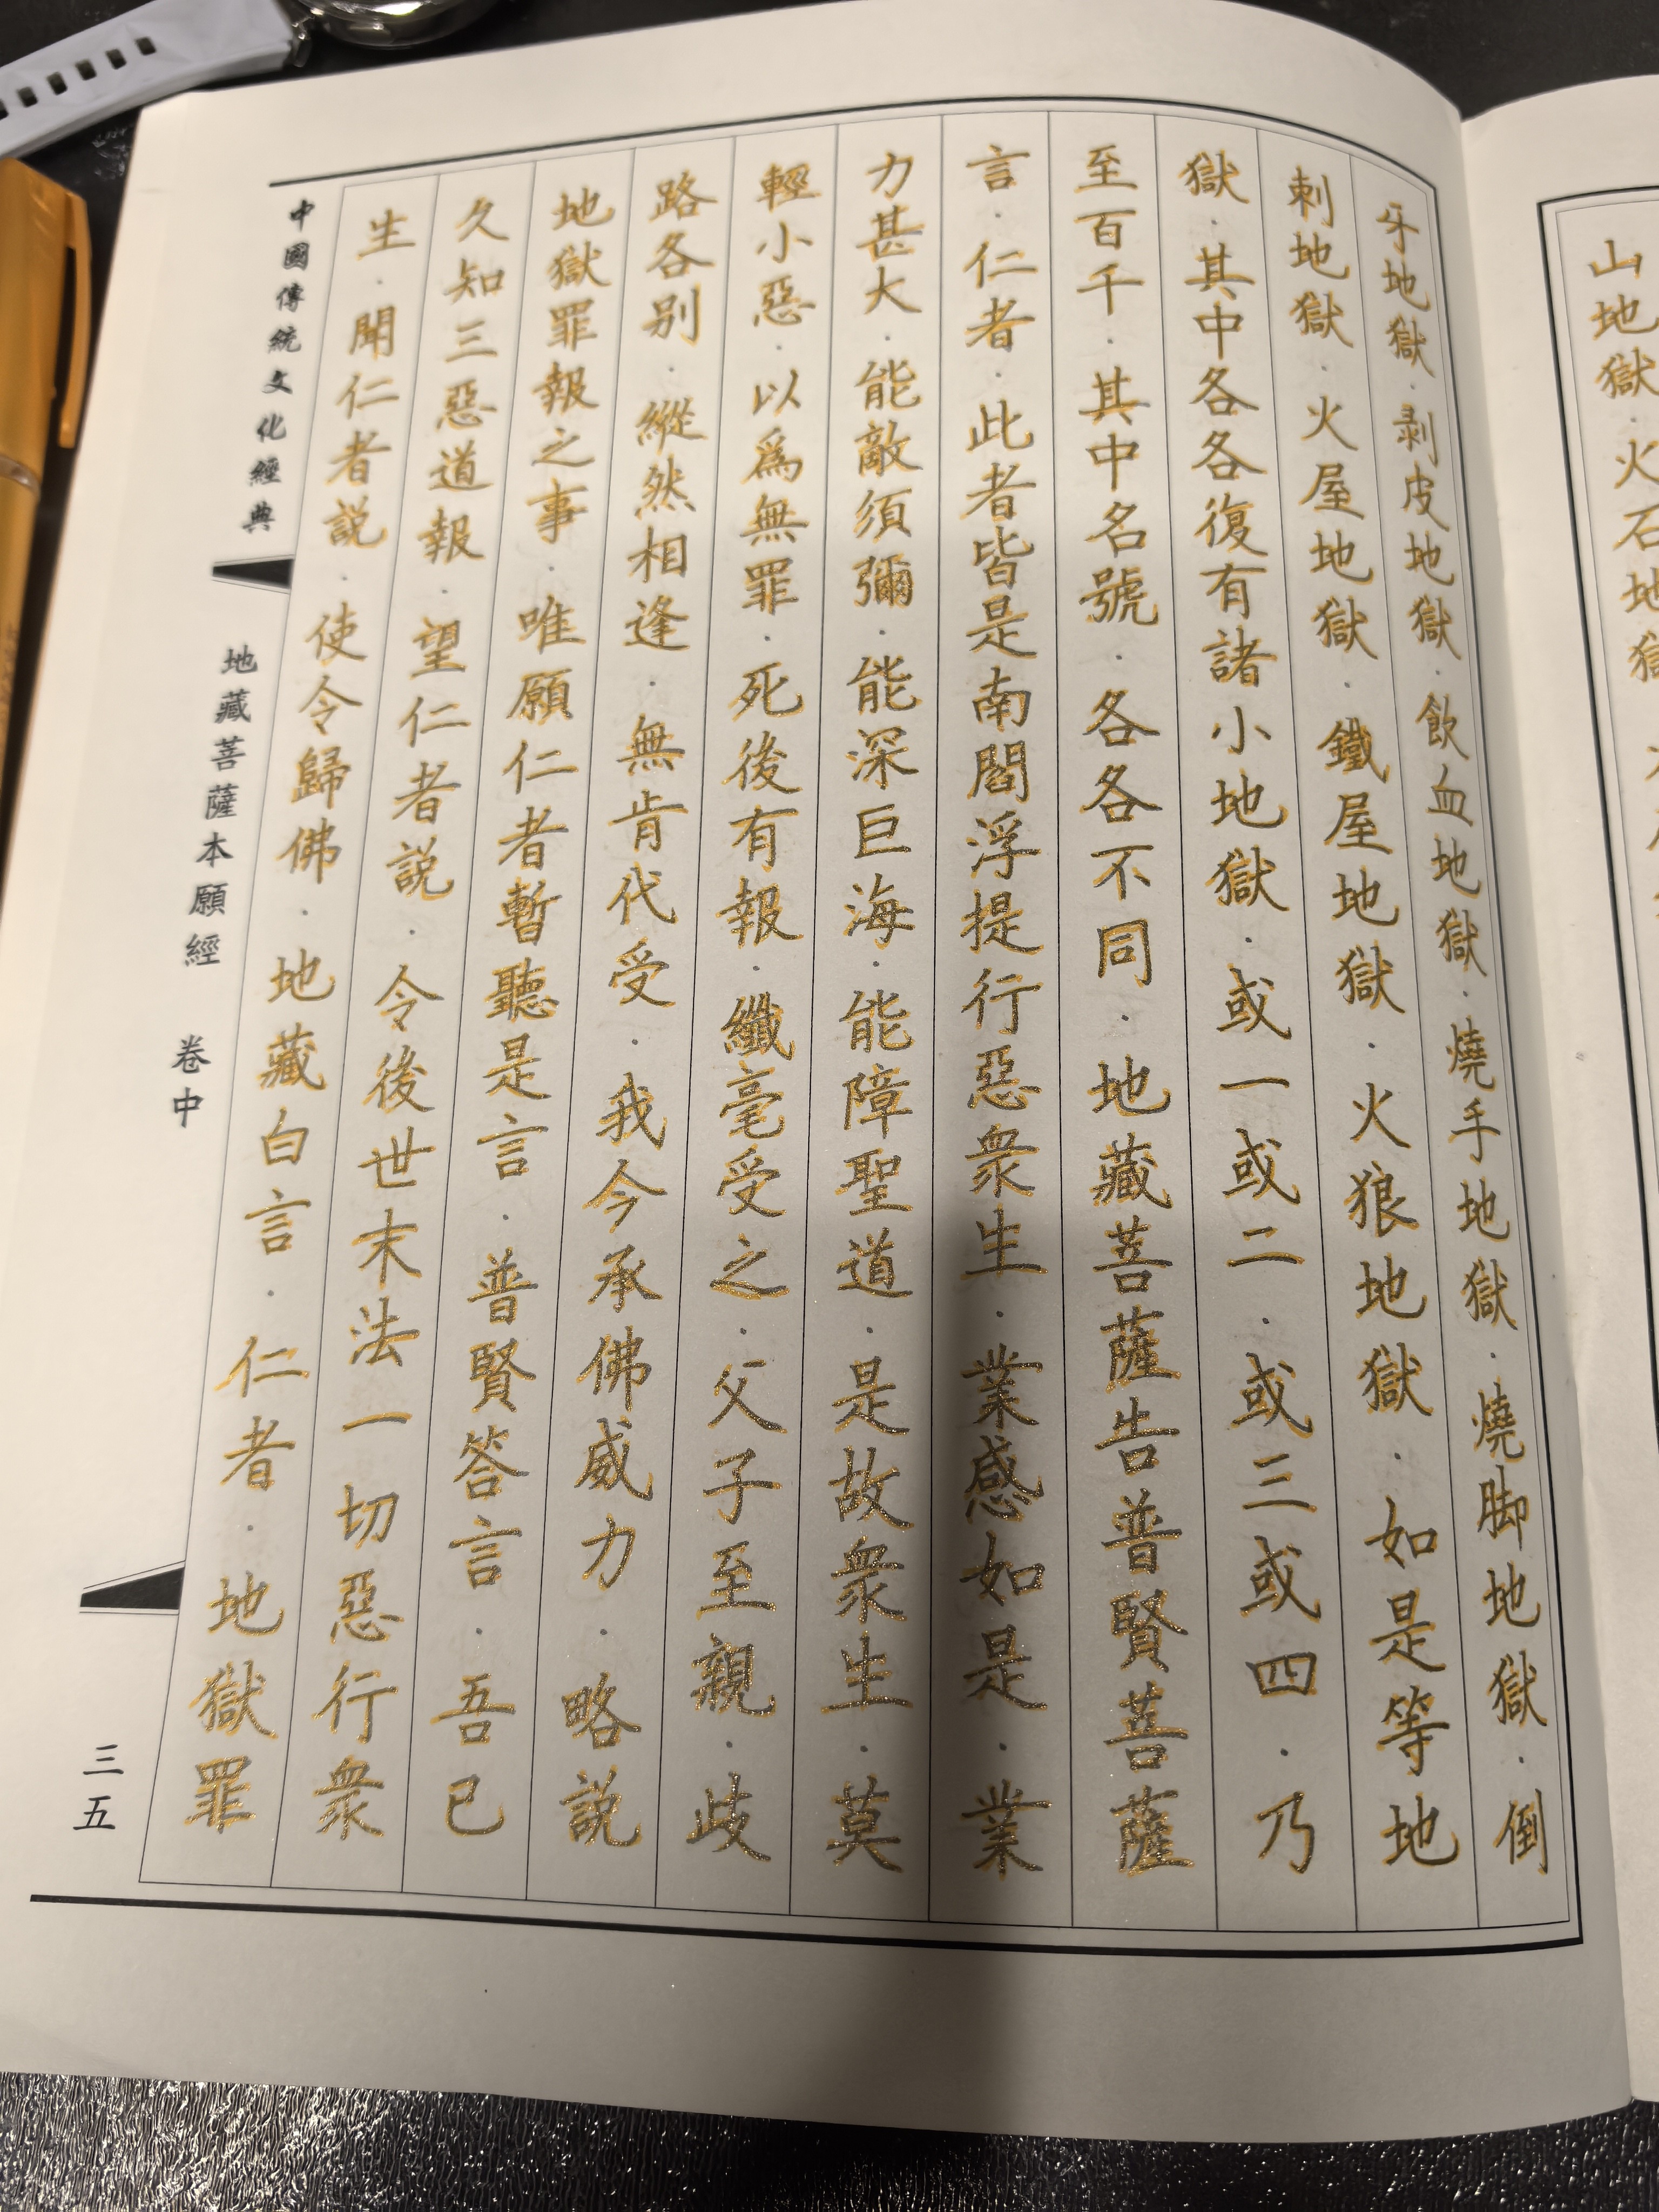 山地獄．火石地獄
牙地獄．剥皮地獄．飲血地獄．燒手地獄．燒脚地獄．倒
刺地獄．火屋地獄．鐵屋地獄．火狼地獄．如是等地
獄．其中各各復有諸小地獄．或一或二．或三或四．乃
至百千．其中名號．各各不同．地藏菩薩告普賢菩薩
言．仁者．此者皆是南閻浮提行惡衆生．業感如是．業
力甚大．能敵須彌．能深巨海．能障聖道．是故衆生．莫
輕小惡．以爲無罪．死後有報．纖毫受之．父子至親．歧
路各别．縱然相逢．無肯代受．我今承佛威力．略説
地獄罪報之事．唯願仁者暫聽是言．普賢答言．吾已
久知三惡道報．望仁者説．令後世末法一切惡行衆
生．聞仁者説．使令歸佛．地藏白言．仁者．地獄罪
中國傳統文化經典
地藏菩薩本願經　卷中
三五